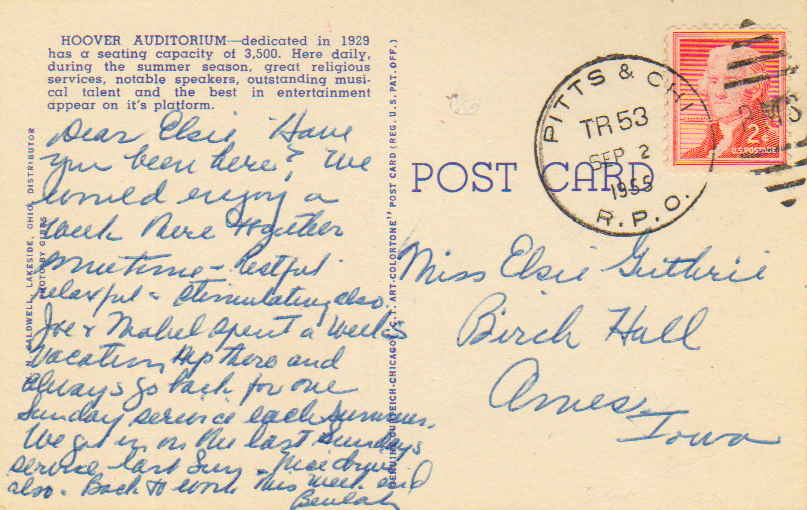 HOOVER AUDITORIUM—dedicated in 1929
has a seating capacity of 3,500. Here daily,
during the summer season, great religious
services, notable speakers, outstanding musi-
cal talent and the best in entertainment
appear on it's platform.
Dear Elsie Have
you been here? We
would enjoy a
week there together
sometime - restful
relaxful & stimulating also.
Joe & Mabel spent a week's
vacation up there and
always go back for one
Sunday service each summer.
We got in on the last Sunday's
service last Sun - Nice drive
also. Back to work this week end
Beulah
CALDWELL, LAKESIDE, OHIO, DISTRIBUTOR
PHOTO BY
GENUINE CURTEICH-CHICAGO "C.T. ART-COLORTONE" POST CARD (REG. U.S. PAT. OFF.)
POST CARD
PITTS & CHI
TR 53
SEP 2
1955
R.P.O.
RMS
2¢
U.S. POSTAGE
Miss Elsie Guthrie
Birch Hall
Ames,
Iowa